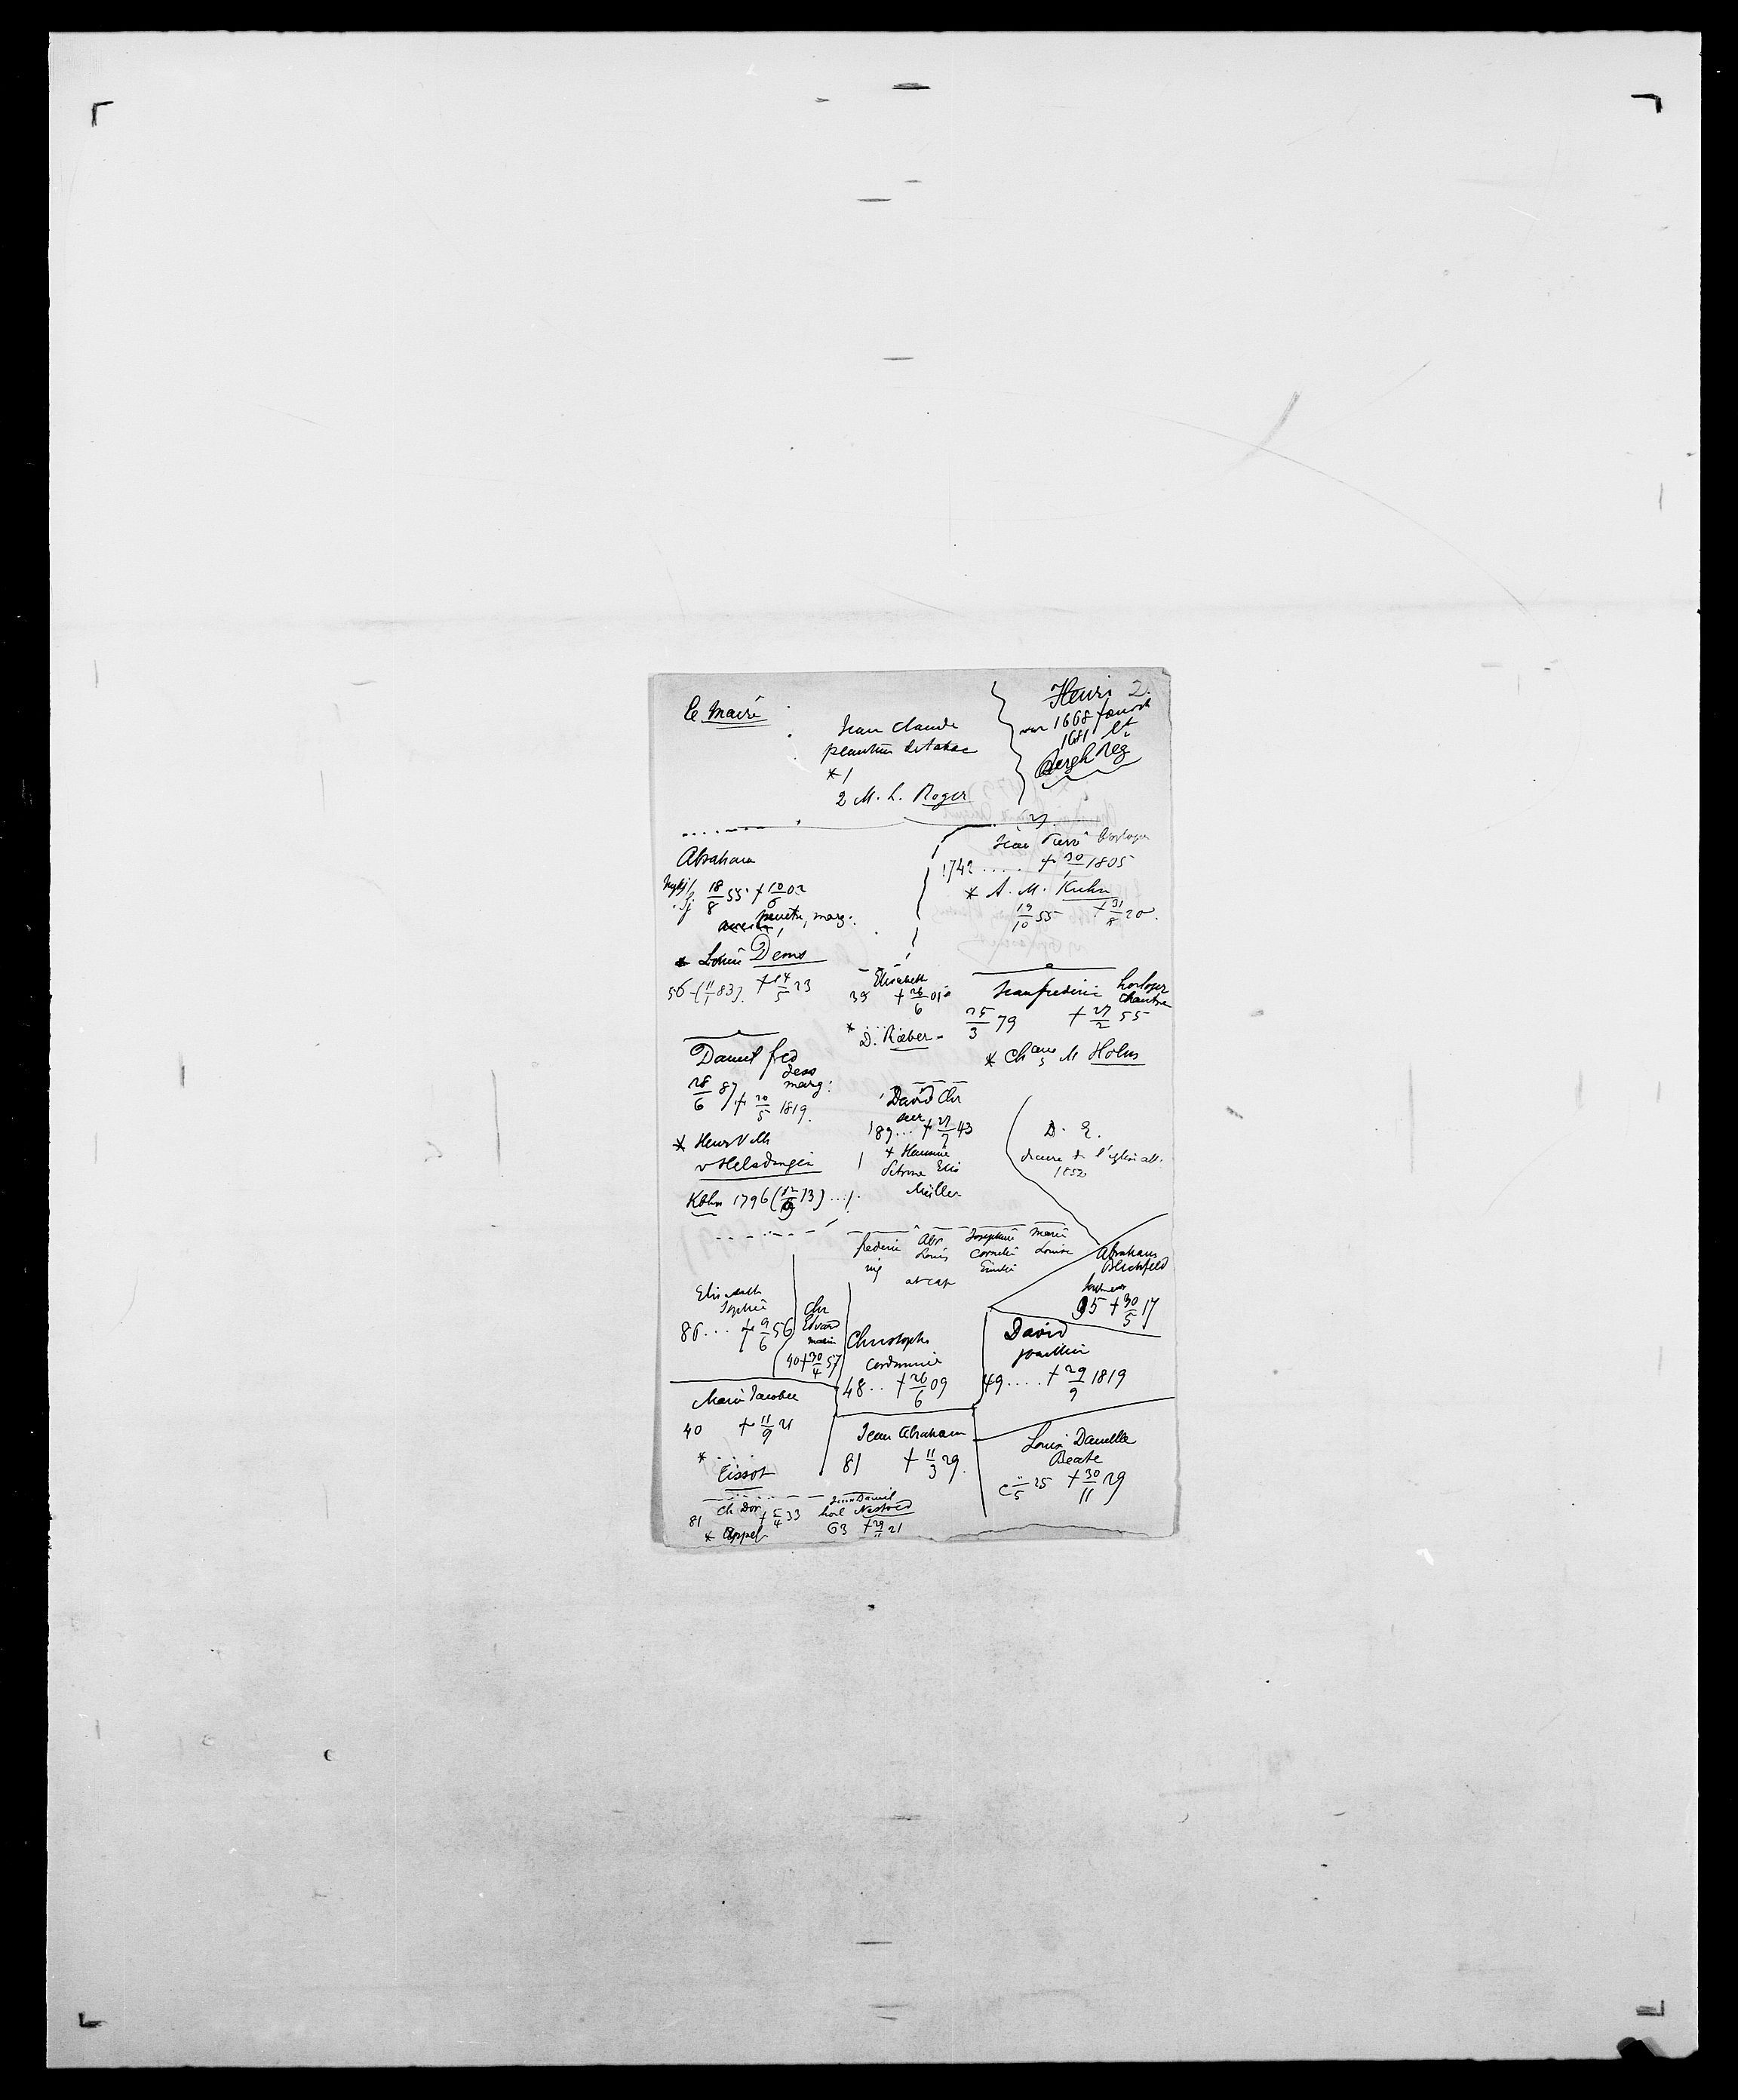 le Maire
Jean Claude
planteur de tabac
* 1
2 M. L. Roger
Henri 2.
1668
1681 Lt
Bergh Reg
Abraham
18/8 55 + 10/6 02
marg:
* Louise Dems
56 (11/1 83). + 14/5 23
Jean Pierre horloger
1742 ..... + 30/1 1805
* A. M. Kuhn
19/10 55 + 31/8 20.
Elisabeth
39 + 26/6 01
* ....
D. Ræber
Jean frederic horloger
chantre
25/3 79 + 27/2 55
* Ch M Holm
Daniel fred
dess
marg:
28/6 87 + 20/5 1819.
* Henr Vilh
v Helsdingen
Kbhn 1796 (12/10 13) ... / .
David Chr
189... + 27/7 43
+ Hermine
Elis
Müller
D. E.
diacre de l'église all.
1852
frederic
Abr
Louis
Josephine
Cornelie
Emilie
Marie
Louise
Abraham
Blichfeld
95 + 30/5 17
Elisabeth
Sophie
86 ... + 9/6 56
Chr
Edvard
marin
40 + 30/4 57
Christophe
Cordonnier
48 .. + 26/6 09
David
49 .... + 29/9 1819
Marie Jacobee
40 + 11/9 21
* ....
Tissot
Jean Abraham
81 + 11/3 29.
Louise Danielle
Beate
c 11/5 25 + 30/11 29
Ch Dor
81 + 5/4 33
* Appel
Jean Daniel
horl Nestved
63 + 29/11 21